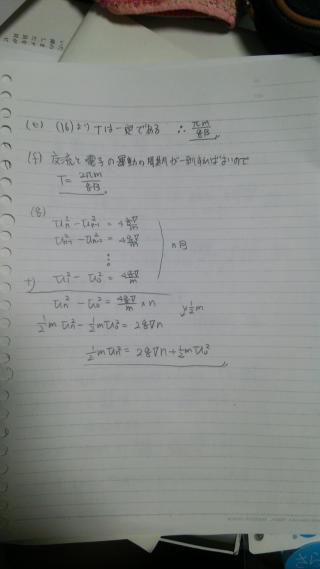 (e) (16)より Tは一定である ∴ πm/qB
(f) 交流と電子の運動の周期が一致すればよいので
T= 2πm/qB
(g)
v_n² - v_{n-1}² = 4qV/m
v_{n-1}² - v_{n-2}² = 4qV/m
⋮
n回
+) v_1² - v_0² = 4qV/m
v_n² - v_0² = 4qV/m × n
1/2 m v_n² - 1/2 m v_0² = 2qVn
1/2 m v_n² = 2qVn + 1/2 m v_0²